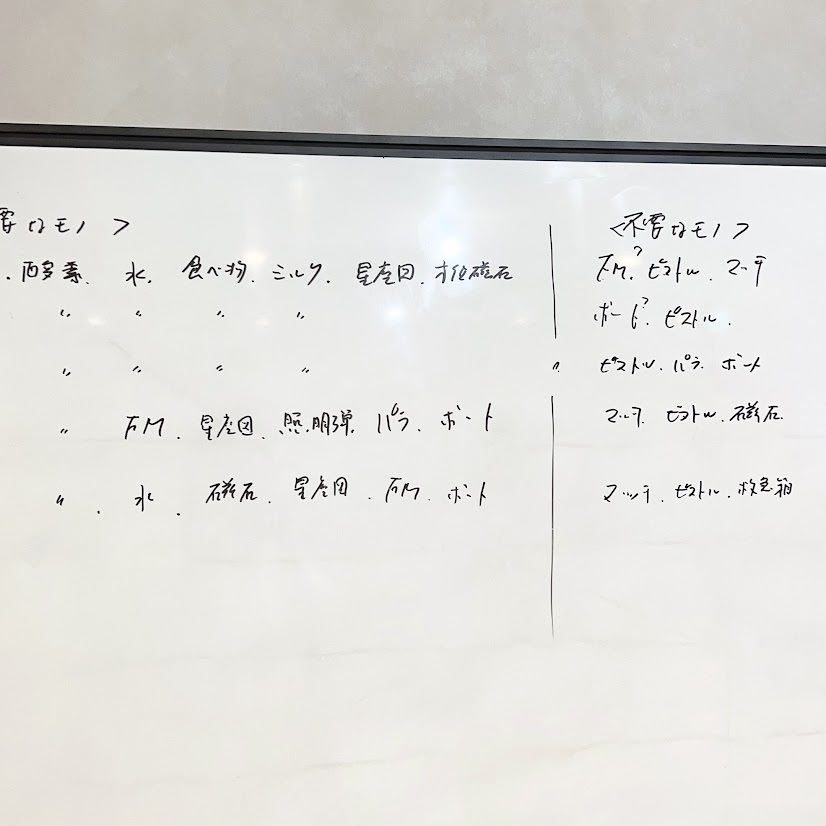 要なモノ > <不要なモノ>
. 酸素. 水. 食べ物. ミルク. 星座図. 方位磁石 FM?. ピストル. マッチ
〃 〃 〃 〃 ボート?. ピストル.
〃 〃 〃 〃 〃 ピストル. パラ. ボート
〃 FM. 星座図. 照明弾. パラ. ボート マッチ. ピストル. 磁石.
〃. 水. 磁石. 星座図. FM. ボート マッチ. ピストル. 救急箱